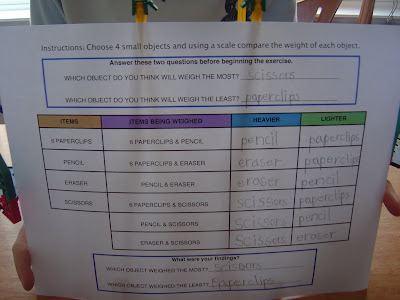 Instructions: Choose 4 small objects and using a scale compare the weight of each object.
Answer these two questions before beginning the exercise.
WHICH OBJECT DO YOU THINK WILL WEIGH THE MOST? scissors
WHICH OBJECT DO YOU THINK WILL WEIGH THE LEAST? paperclips
ITEMS ITEMS BEING WEIGHED HEAVIER LIGHTER
6 PAPERCLIPS 6 PAPERCLIPS & PENCIL pencil paperclips
PENCIL 6 PAPERCLIPS & ERASER eraser paperclips
ERASER PENCIL & ERASER eraser pencil
SCISSORS 6 PAPERCLIPS & SCISSORS scissors paperclips
PENCIL & SCISSORS scissors pencil
ERASER & SCISSORS scissors eraser
What were your findings?
WHICH OBJECT WEIGHED THE MOST? scissors
WHICH OBJECT WEIGHED THE LEAST? paperclips